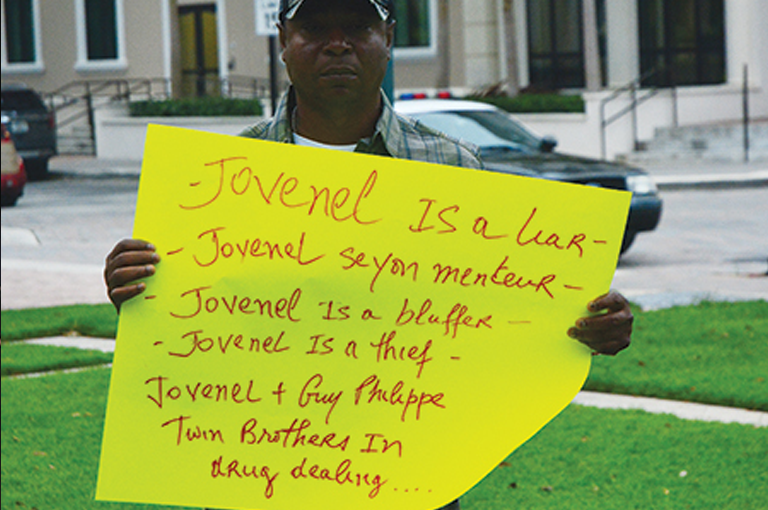 - Jovenel Is a liar -
- Jovenel se yon menteur -
- Jovenel Is a bluffer -
- Jovenel Is a thief -
Jovenel + Guy Philippe
Twin Brothers In
drug dealing....